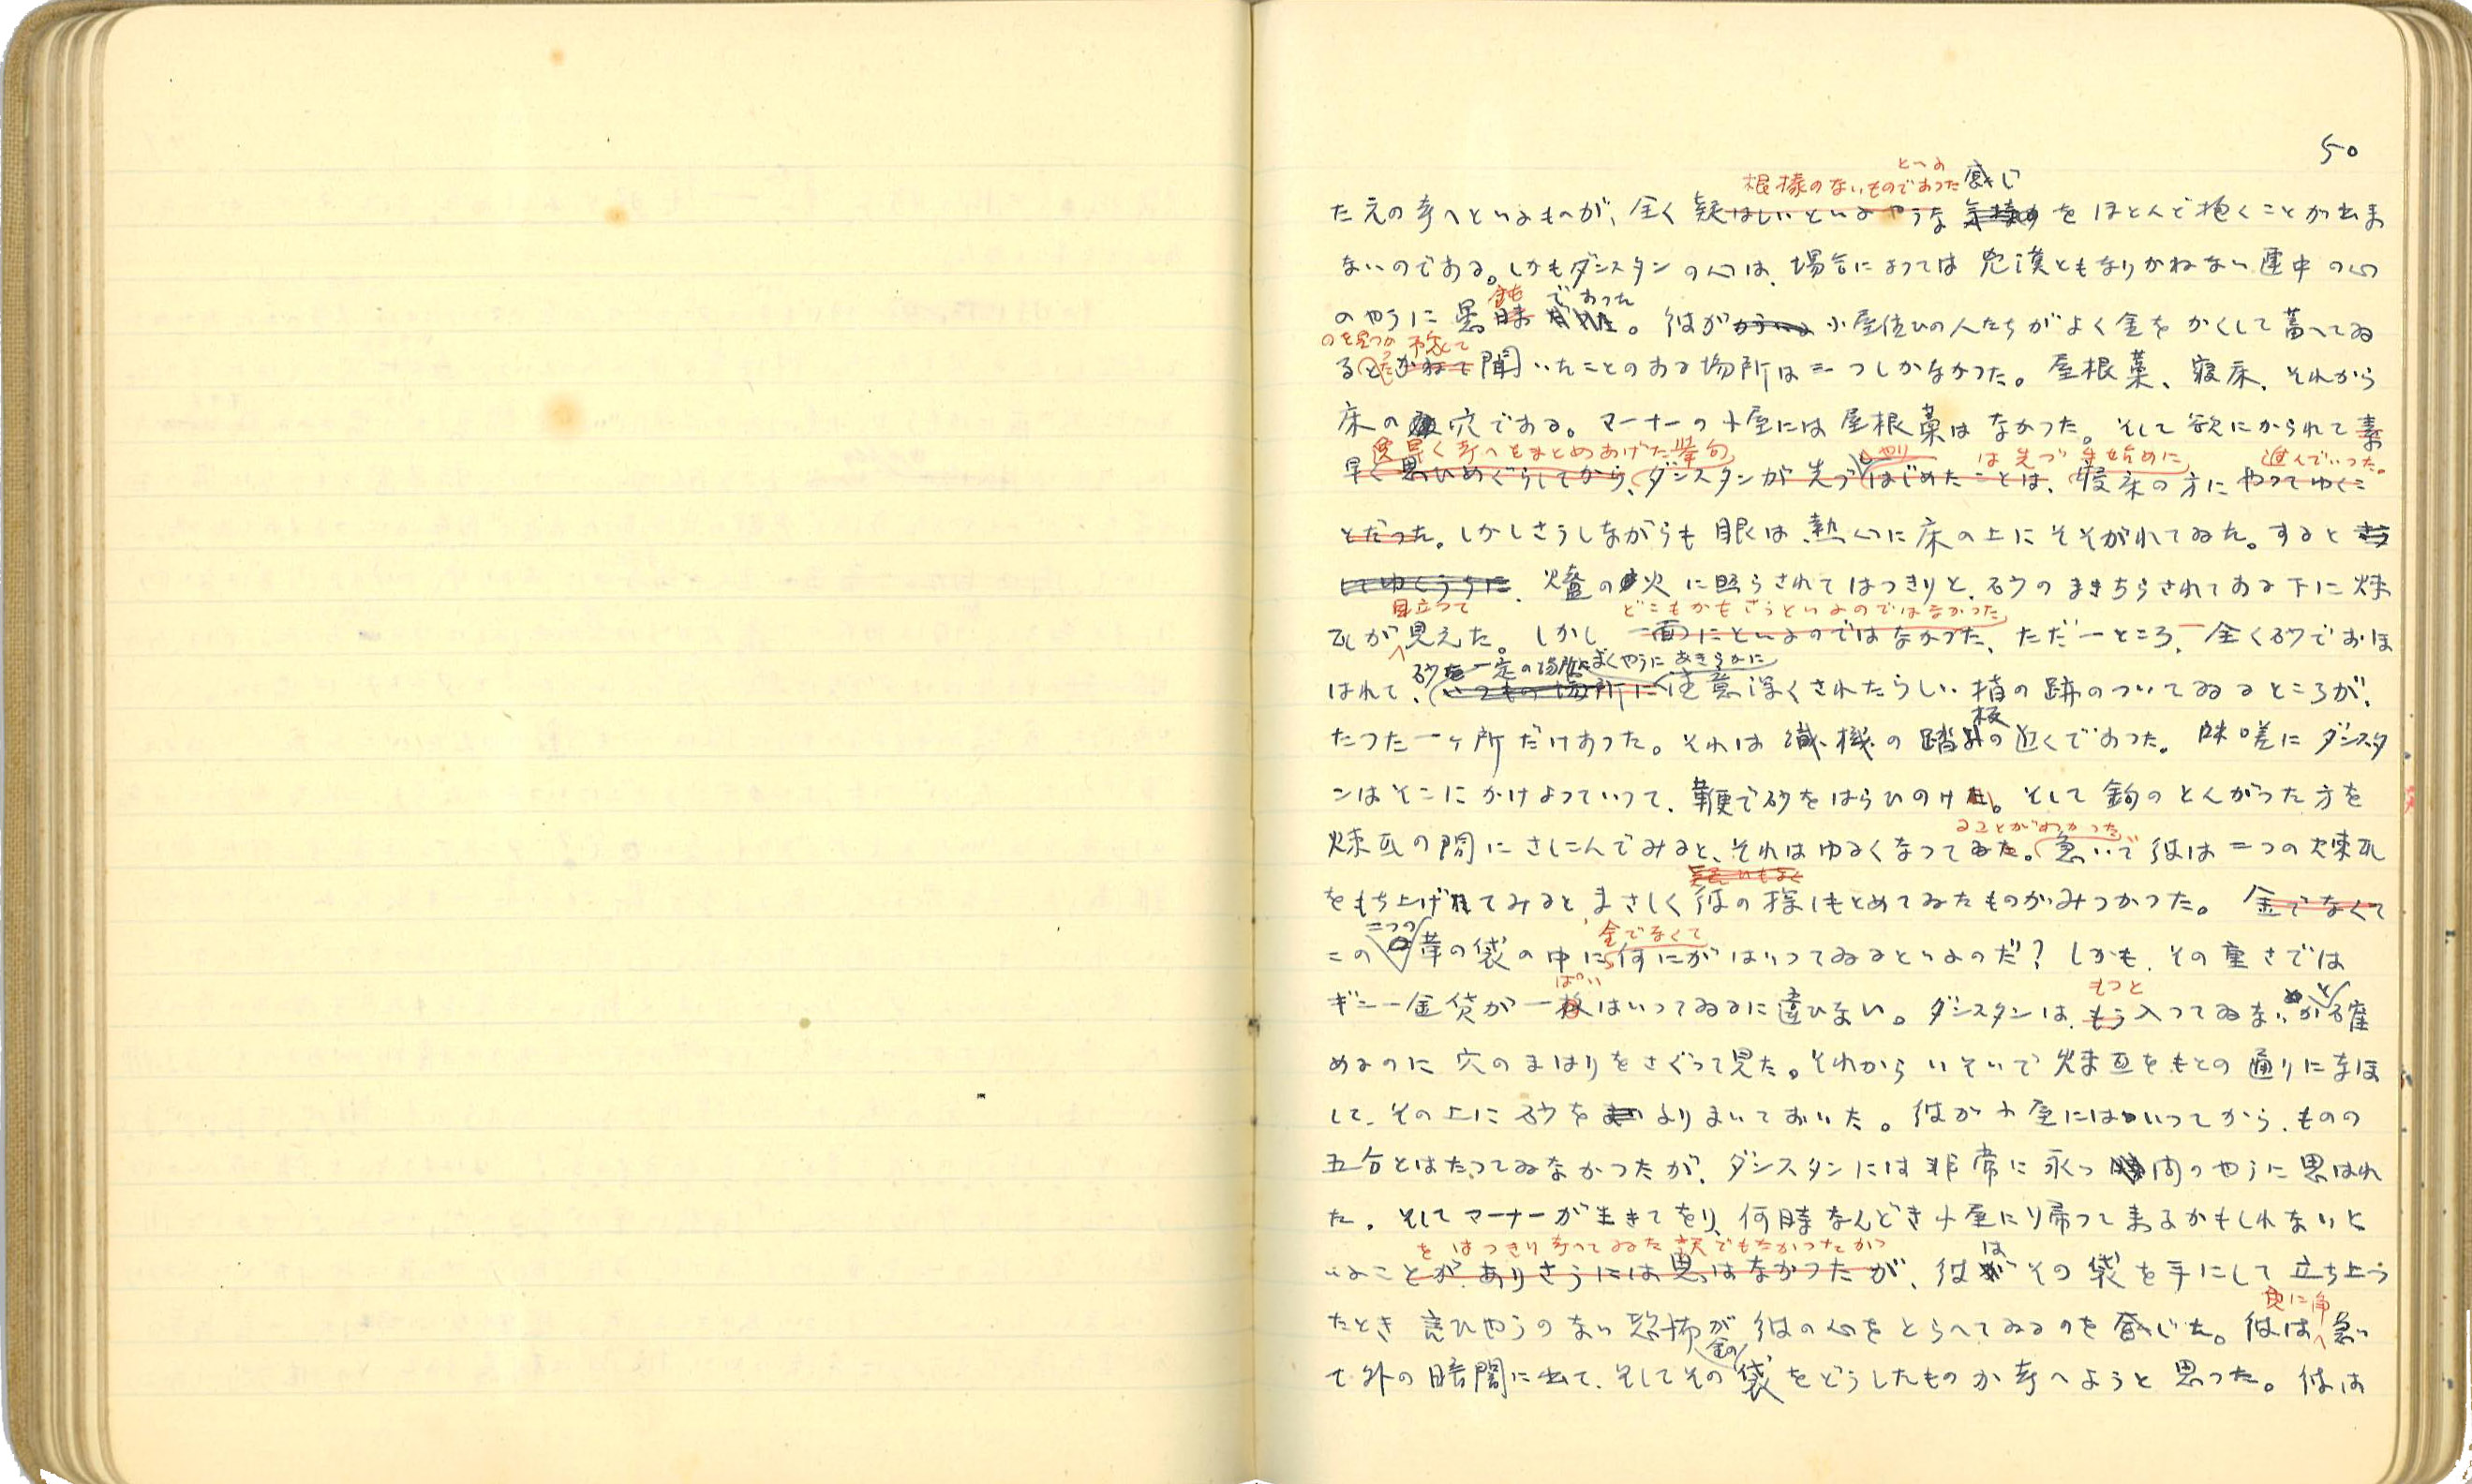 50
根様のないものであつた
といふ
感じ
たえの考へといふものが、全く疑はしいといふやうな をほとんど抱くことが出来
ないのである。しかもダンスタンの心は、場合によつては兇漢ともなりかねない連中の心
鈍 であつた
のやうに愚昧 。彼が 小屋住ひの人たちがよく金をかくして蓄へてゐ
ると かねて聞いたことのある場所は三つしかなかつた。屋根藁、寝床、それから
床の 穴である。マーナーの小屋には屋根藁はなかつた。そして欲にかられて素
早く考へをまとめあげた挙句 は先づ手始めに 進んでいつた。
早く思ひめぐらしてから、ダンスタンが先づはじめたことは、寝床の方にやつてゆくこ
とだつた。しかしさうしながらも眼は、熱心に床の上にそそがれてゐた。すると
してゆくうちに、爐の火に照らされてはつきりと、砂のまきちらされてある下に煉
目立つて どこもかもさうといふのではなかつた
瓦が見えた。しかし一面にといふのではなかつた、ただ一ところ、全く砂でおほ
砂を一定の場所にまくやうにあきらかに
はれて、いつもの場所に注意深くされたらしい指の跡のついてゐるところが、
板
たつた一ヶ所だけあつた。それは織機の踏みの近くであつた。咄嗟にダンスタ
ンはそこにかけよつていつて、鞭で砂をはらひのけた。そして鉤のとんがつた方を
ることがわかつた
煉瓦の間にさしこんでみると、それはゆるくなつてゐた。急いで彼は二つの煉瓦
疑いもなく
をもち上げてみるとまさしく彼の探しもとめてゐたものがみつかつた。金でなくて
二つの 金でなくて
この革の袋の中に何にがはいつてゐるといふのだ？しかも、その重さでは
ぱい もつと
ギニー金貨が一杯はいつてゐるに違ひない。ダンスタンは、もう入つてゐないかと確
めるのに穴のまはりをさぐつて見た。それからいそいで煉瓦をもとの通りになほ
して、その上に砂を よりまいておいた。彼が小屋にはいつてから、ものの
五分とはたつてゐなかつたが、ダンスタンには非常に永い時間のやうに思はれ
た。そしてマーナーが生きてをり、何時なんどき小屋に帰つて来るかもしれないと
をはつきり考へてゐた訳でもなかつたが は
いふことがありさうには思はなかつたが、彼が その袋を手にして立ち上つ
たとき言ひやうのない恐怖が彼の心をとらへてゐるのを感じた。彼は急い
金の
で外の暗闇に出て、そしてその袋をどうしたものか考へようと思つた。彼は